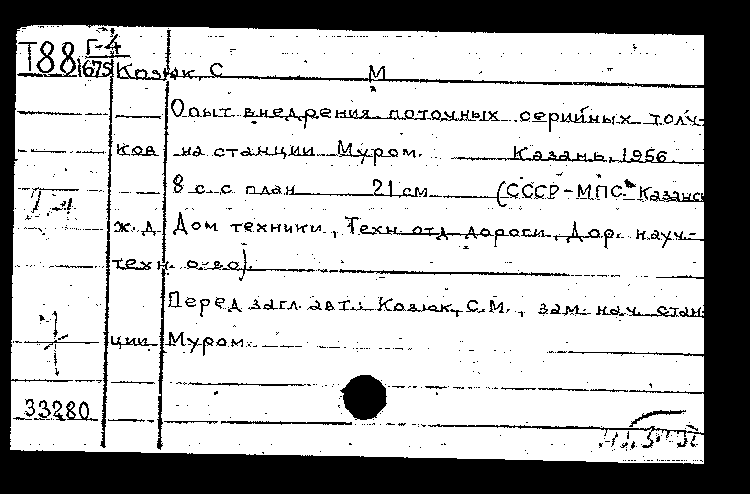 Г-4
Т88
1675 Козюк, С М
Опыт внедрения поточных серийных толч-
ков на станции Муром. Казань, 1956.
8 с. с план 21 см (СССР-МПС. Казанск
ж. д Дом техники, Техн. отд дороги, Дор. науч.-
техн. о-во).
Перед загл. авт.: Козюк, С.М., зам. нач. стан-
ции Муром.
33280